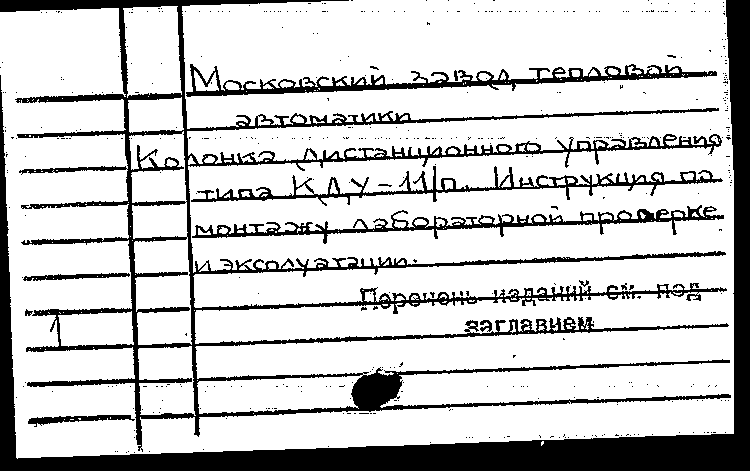 Московский завод тепловой
автоматики
Колонка дистанционного управления
типа КДУ-11/п. Инструкция по
монтажу лабораторной проверке
и эксплуатации.
Перечень изданий см. под
заглавием
1